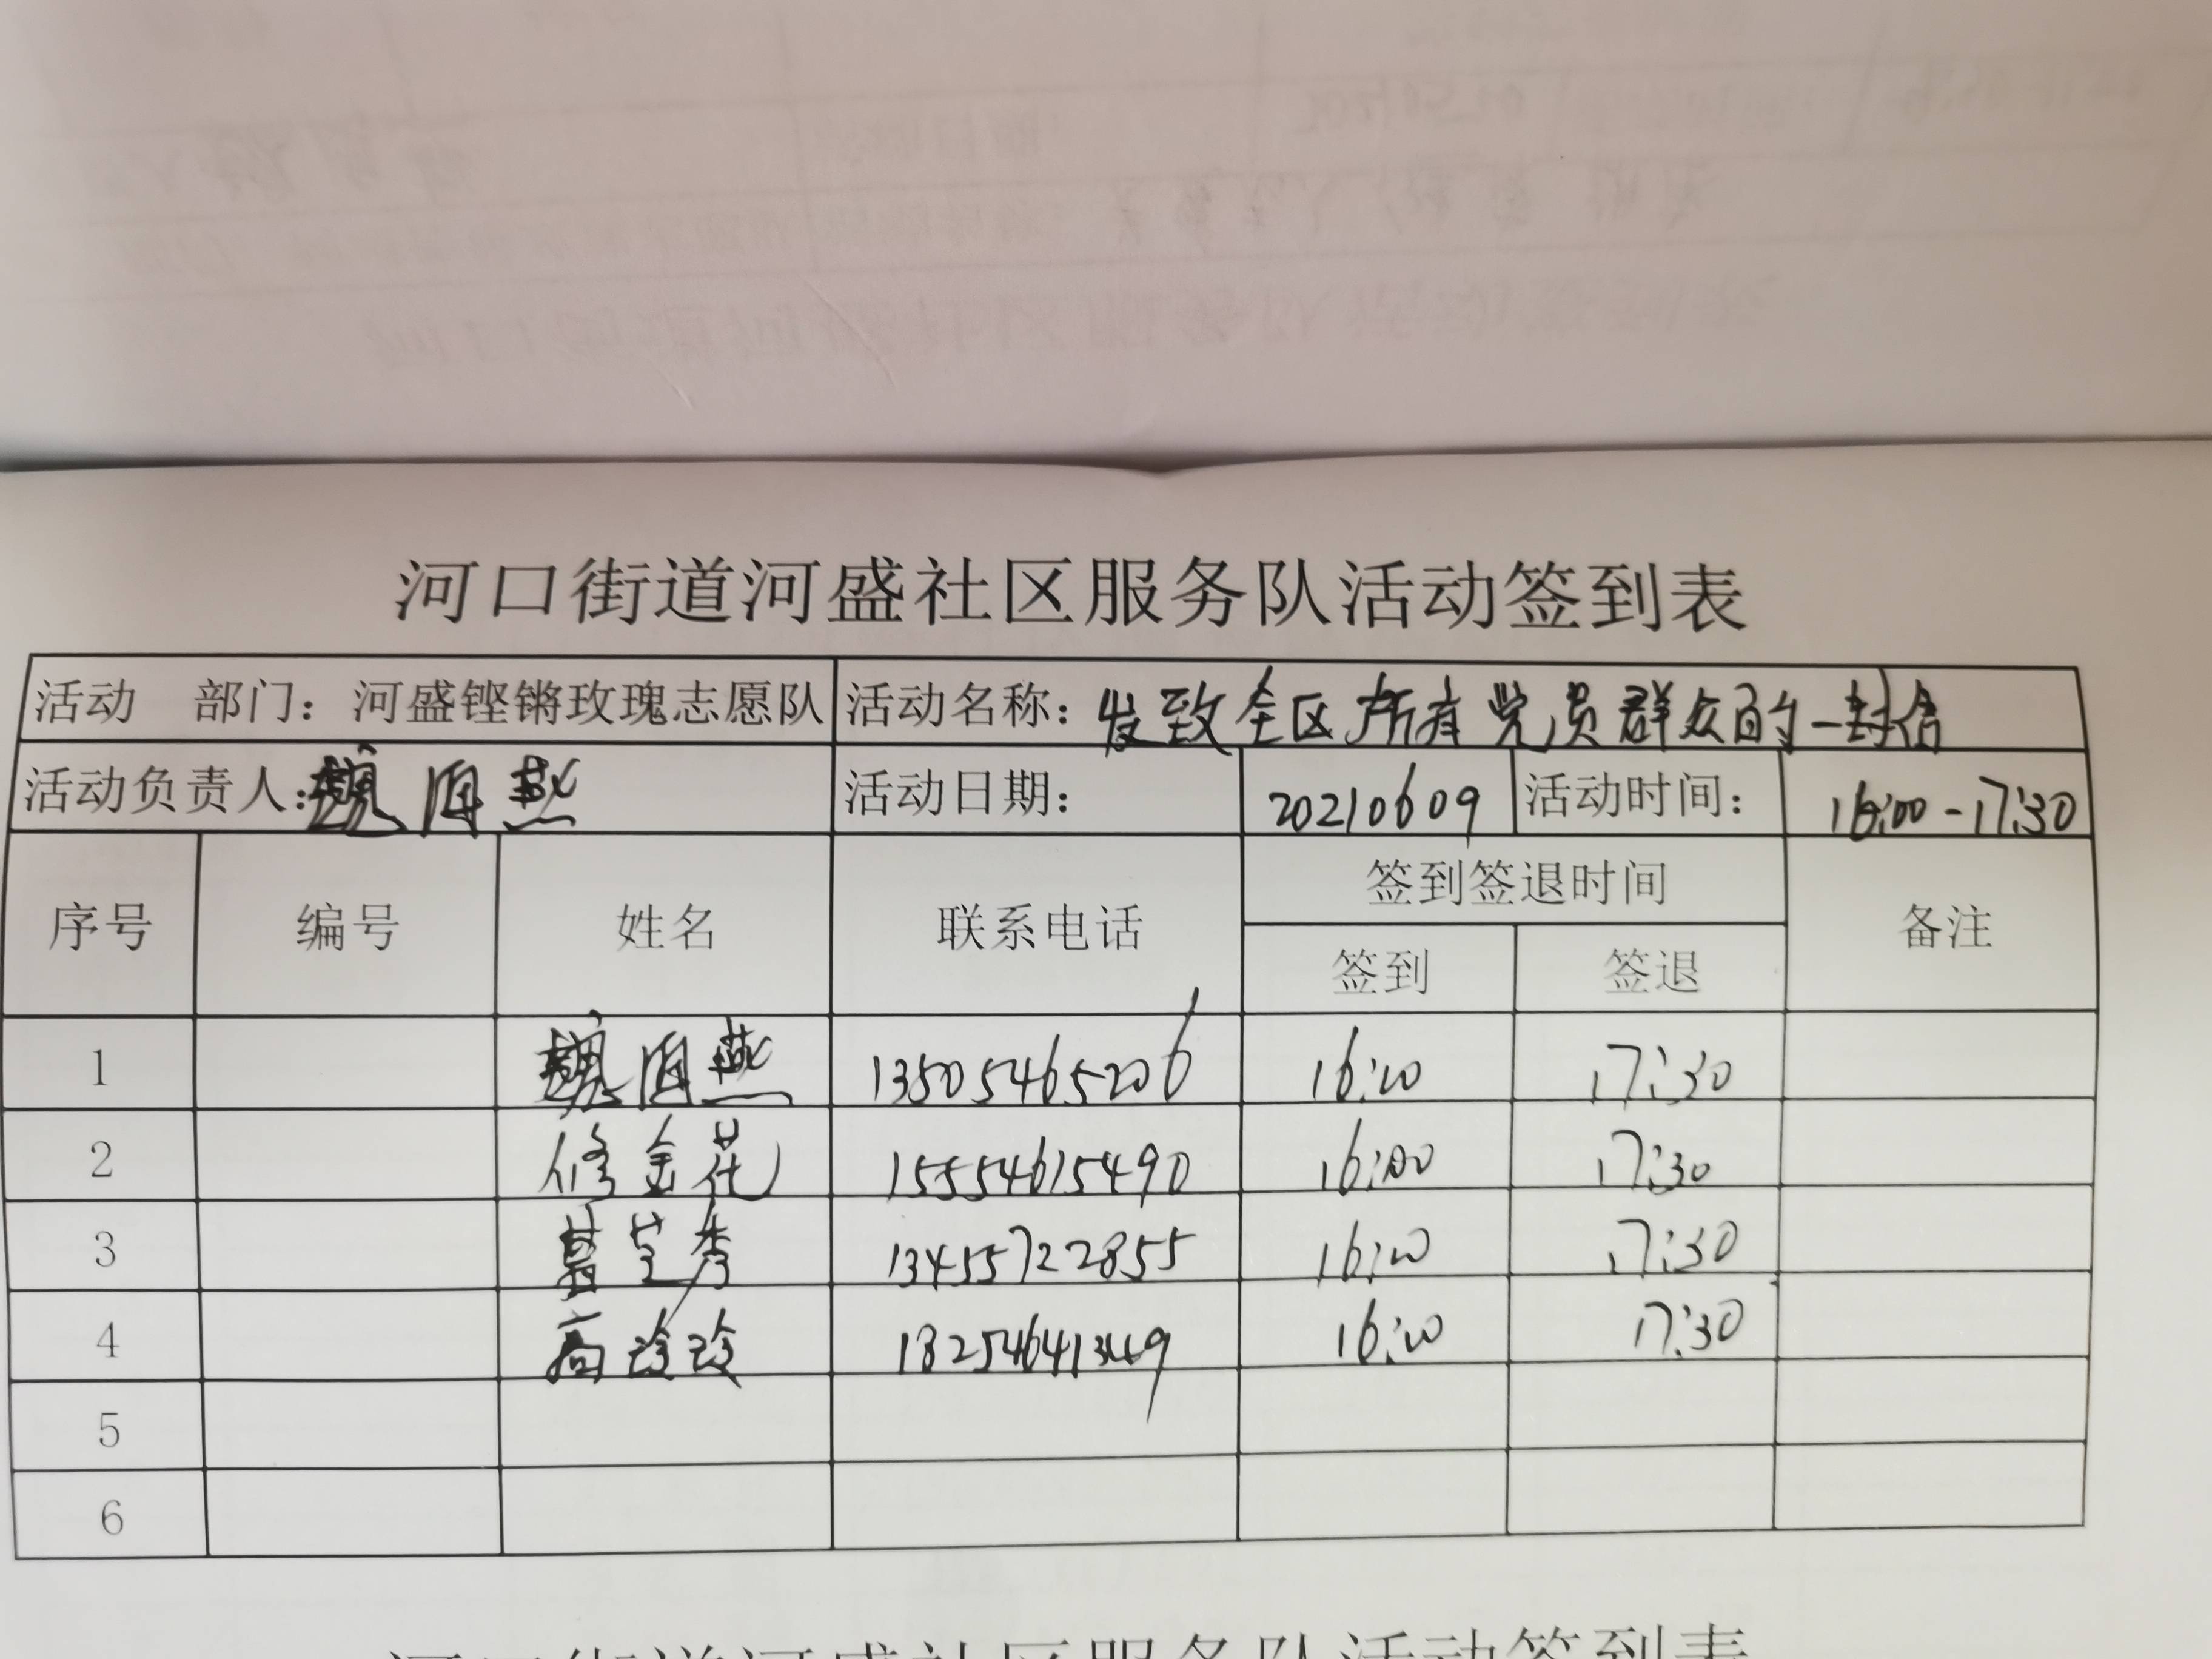 河口街道河盛社区服务队活动签到表
活动 部门：河盛铿锵玫瑰志愿队 活动名称：发致全区所有党员群众的一封信
活动负责人：魏海燕 活动日期： 20210609 活动时间： 16:00-17:30
序号 编号 姓名 联系电话 签到签退时间 备注
签到 签退
1 魏海燕 13505465206 16:00 17:30
2 修金花 15554615490 16:00 17:30
3 秀 13455722855 16:00 17:30
4 高玲玲 18254641349 16:00 17:30
5
6
河口街道河盛社区服务队活动签到表